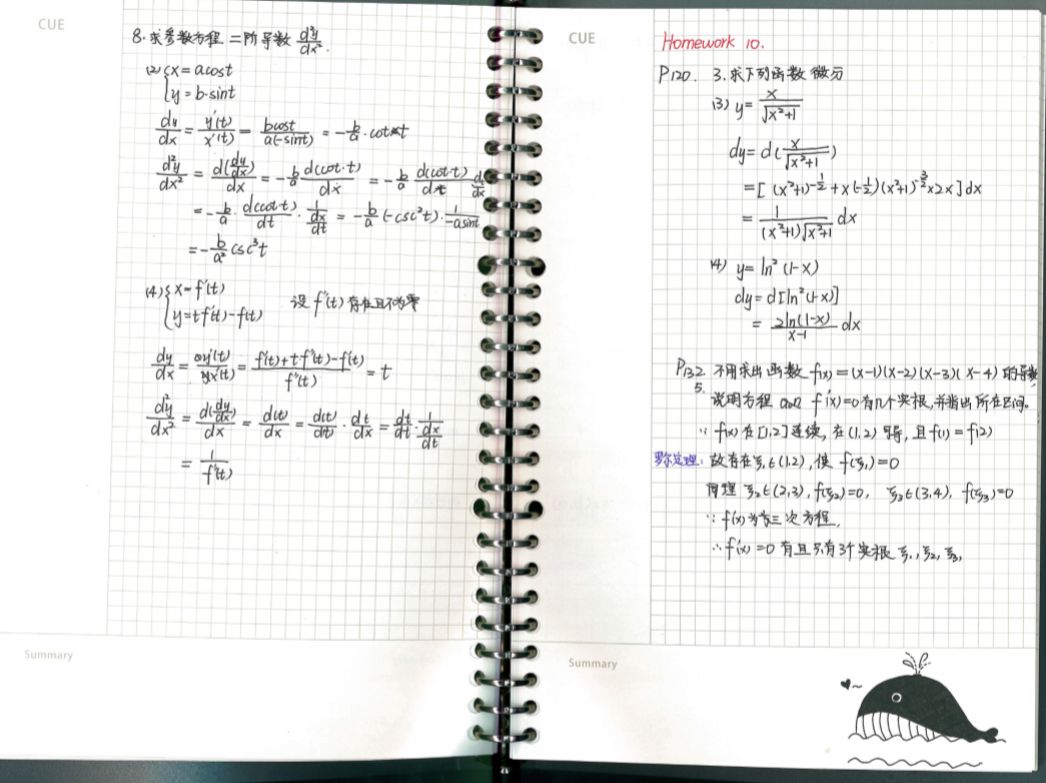 CUE
8. 求参数方程 二阶导数 d²y/dx².
(2) {x = acost
{y = b·sint
dy/dx = y'(t)/x'(t) = bcost/a(-sint) = -b/a · cot t
d²y/dx² = d(dy/dx)/dx = -b/a d(cot·t)/dx = -b/a d(cot·t)/dt dt/dx
= -b/a · d(cot·t)/dt · 1/(dx/dt) = -b/a (-csc²t) · 1/-asint
= -b/a² csc³t
(4) {x = f'(t)
{y = tf'(t) - f(t) 设 f''(t) 存在且不为零
dy/dx = y'(t)/x'(t) = f'(t)+t·f''(t)-f'(t)/f''(t) = t
d²y/dx² = d(dy/dx)/dx = d(t)/dx = d(t)/d(t) · dt/dx = dt/dt · 1/(dx/dt)
= 1/f''(t)
Summary
CUE
Homework 10.
P120. 3. 求下列函数 微分
(3) y = x/√x²+1
dy = d(x/√x²+1)
= [(x²+1)^-1/2 + x(-1/2)(x²+1)^-3/2 x2x] dx
= 1/(x²+1)√x²+1 dx
(4) y = ln²(1-x)
dy = d[ln²(1-x)]
= 2ln(1-x)/x-1 dx
P132 不用求出函数 f(x) = (x-1)(x-2)(x-3)(x-4) 的导数
5. 说明方程 f'(x)=0 有几个实根, 并指出所在区间.
∵ f(x) 在 [1,2] 连续, 在 (1,2) 可导, 且 f(1) = f(2)
罗尔定理: 故存在 ξ₁∈(1,2), 使 f'(ξ₁) = 0
同理 ξ₂∈(2,3), f'(ξ₂)=0, ξ₃∈(3,4), f'(ξ₃)=0
∵ f'(x) 为三次方程,
∴ f'(x) = 0 有且只有3个实根 ξ₁, ξ₂, ξ₃,
Summary